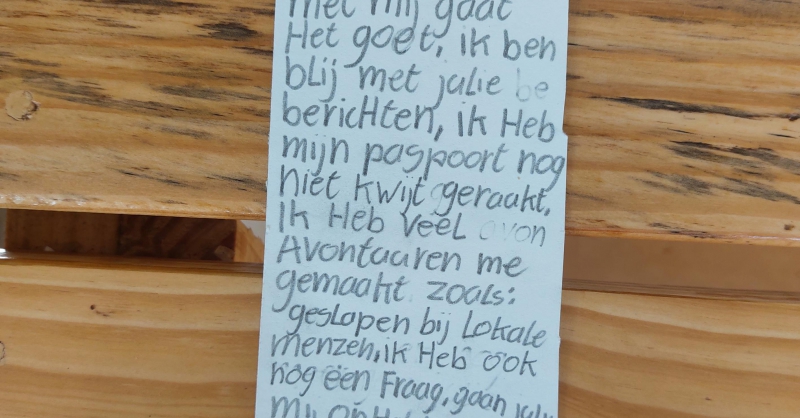 met mij gaat
Het goet, ik ben
blij met julie be
bericHten, ik Heb
mijn paspoort nog
niet kwijt geraakt,
Ik Heb veel avon
Avontuuren me
gemaakt zoals:
geslapen bij Lokale
menzen,ik Heb ook
nog een Fraag, gaan julie